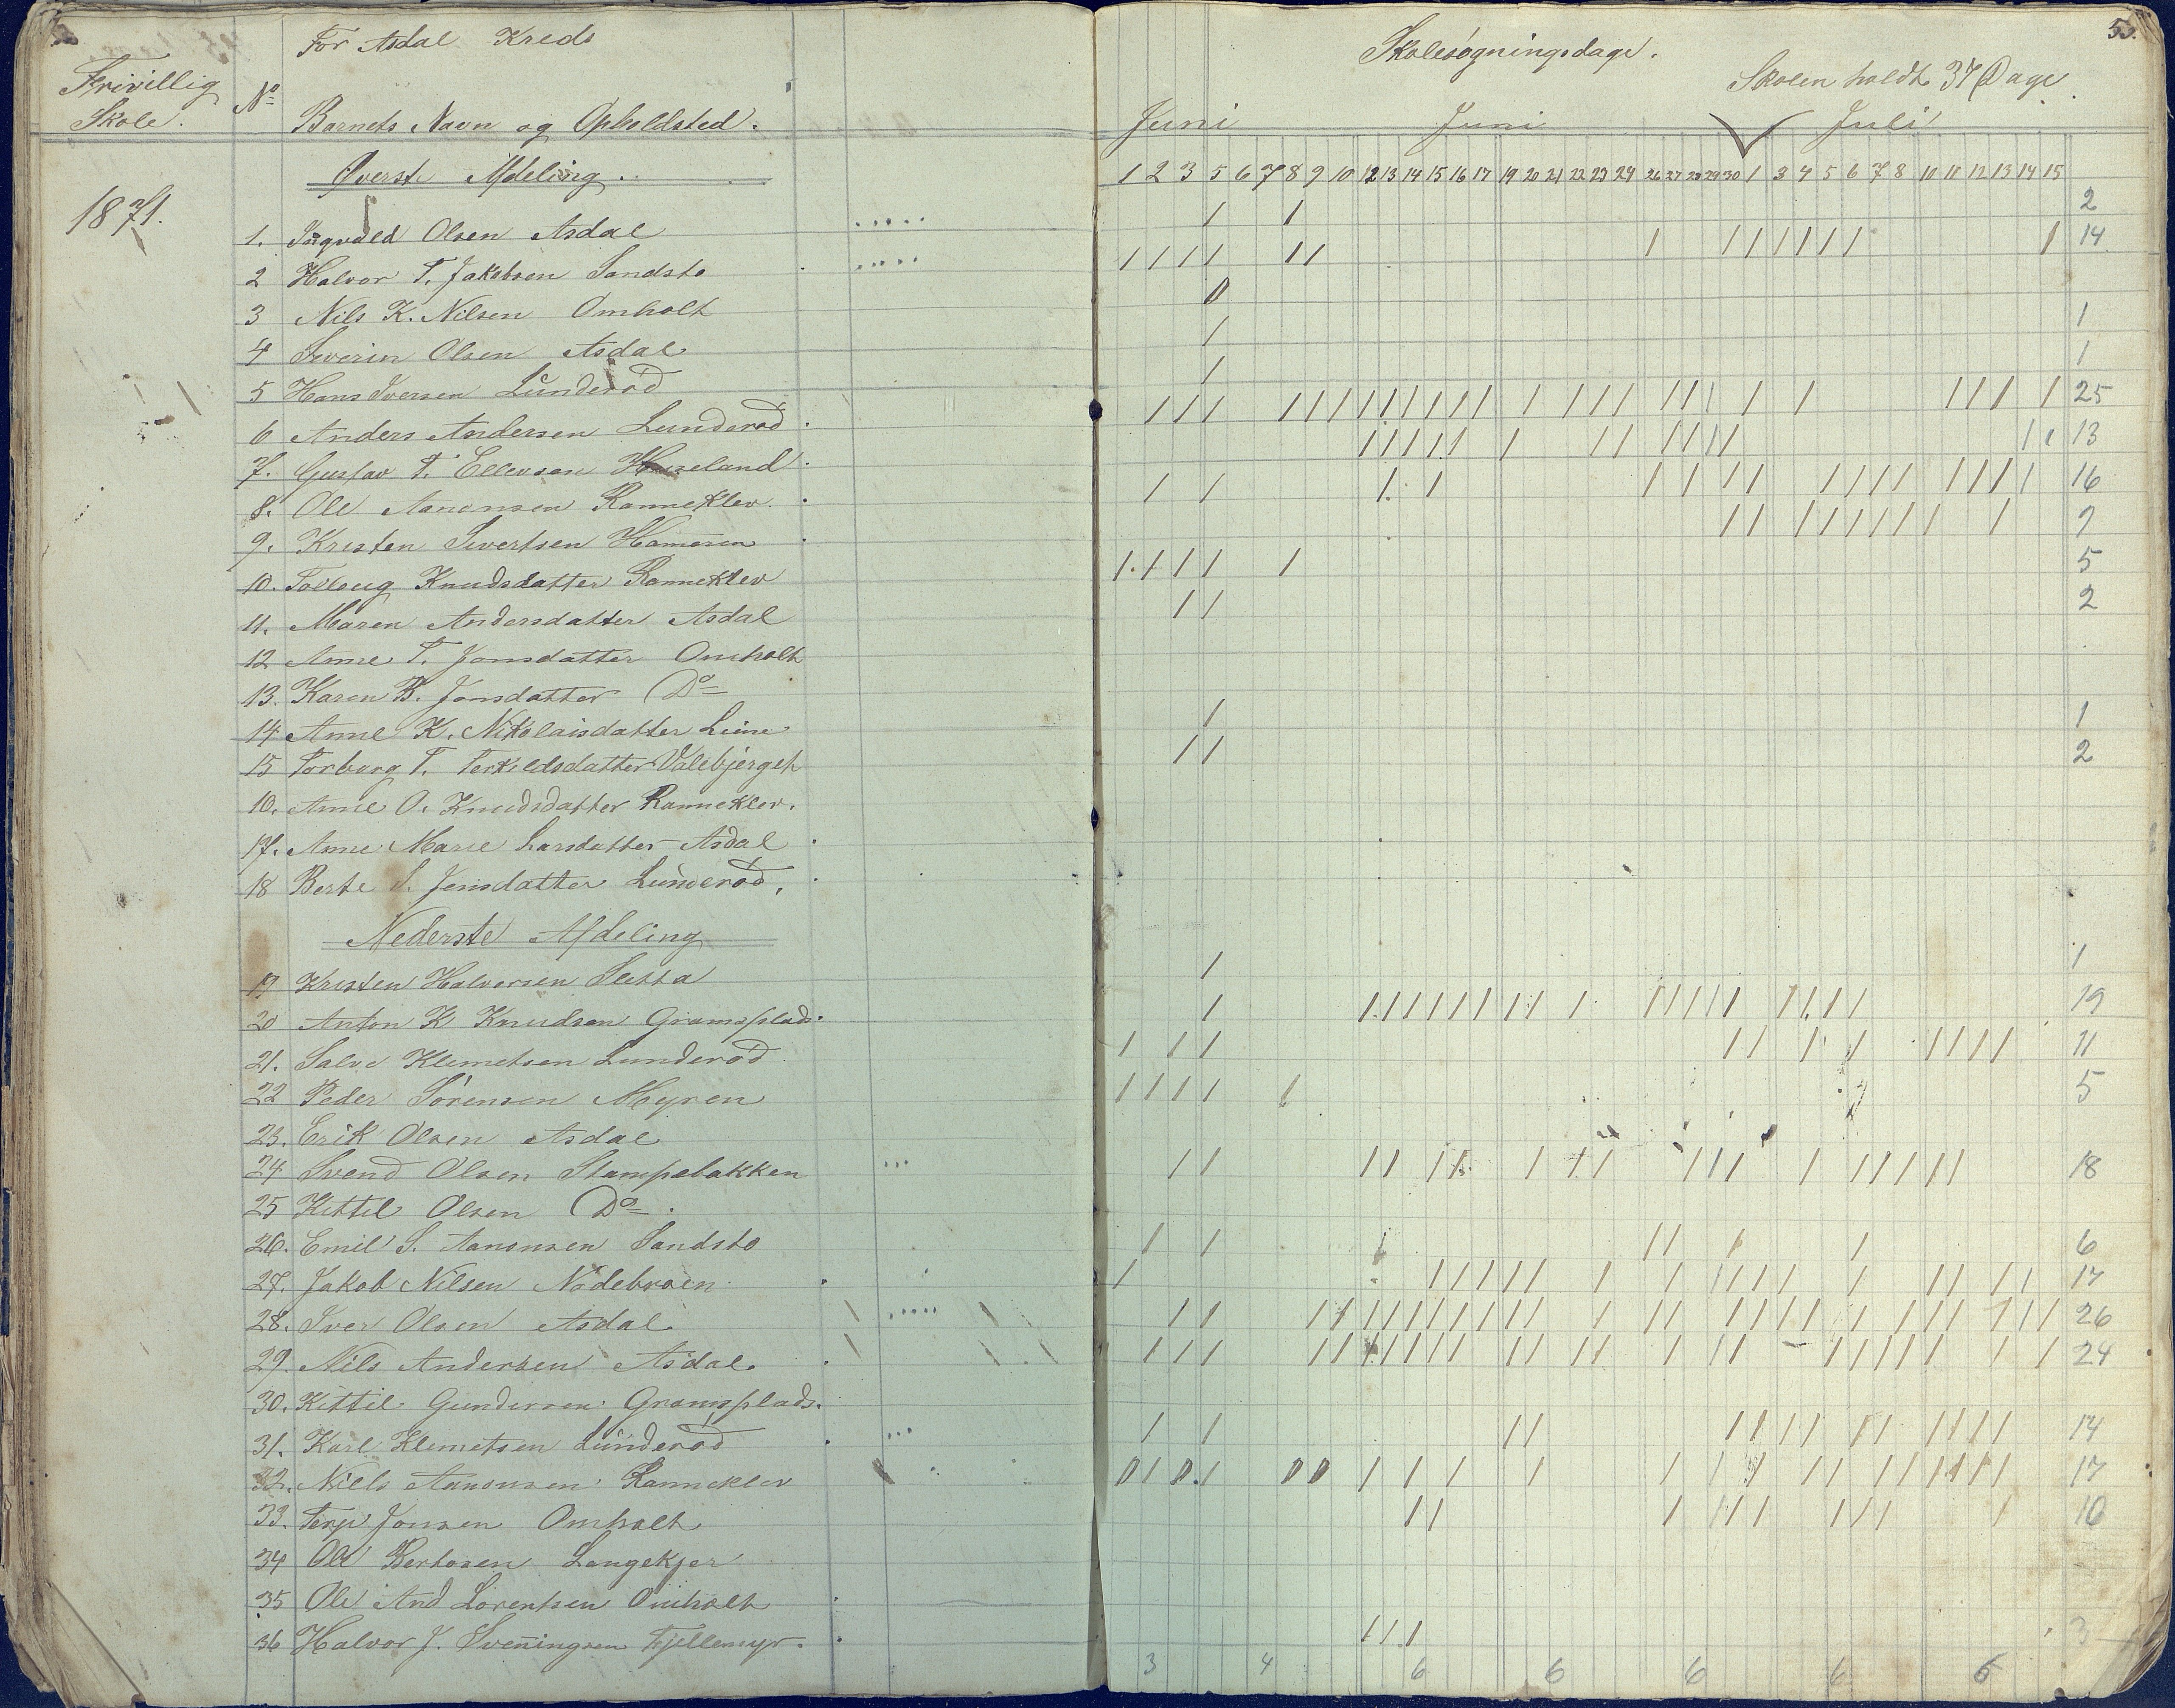 For Asdal Kreds
Frivillig
Skole.
No
Barnets Navn og Opholdsted.
Skolesøgningsdage.
55.
Skolen holdt 37 Dage.
Juni Juni Juli
Øverste Afdeling.
1 2 3 5 6 7 8 9 10 12 13 14 15 16 17 19 20 21 22 23 24 26 27 28 29 30 1 3 4 5 6 7 8 10 11 12 13 14 15
1871.
1. Ingvald Olsen Asdal 2
2 Halvor T. Jakobsen Sandstø 14
3 Nils K. Nilsen Omholt 0
4 Severin Olsen Asdal 1
5 Hans Iversen Lunderød 1
6 Anders Andersen Lunderød 25
7. Gustav T. Ellevsen Haseland 13
8. Ole Aanonsen Ranneklev 16
9. Kristen Sivertsen Hammeren 9
10. Tolloug Knudsdatter Ranneklev 5
11. Maren Andersdatter Asdal 2
12 Anne T. Jonsdatter Omholt
13. Karen B. Jonsdatter Do
14 Anne K. Nikolaisdatter Liene 1
15 Torborg T. Terkildsdatter Valebjerget 2
16. Anne O. Knudsdatter Ranneklev.
17. Anne Marie Larsdatter Asdal
18 Berte S. Jensdatter Lunderød.
Nederste Afdeling
19 Kristen Halvorsen Sletta 1
20 Anton K Knudsen Gramsplads. 19
21. Salve Klemetsen Lunderød 11
22 Peder Sørensen Myren 5
23. Erik Olsen Asdal
24 Svend Olsen Stampebakken 18
25 Kittil Olsen Do.
26. Emil S. Aanonsen Sandstø 6
27. Jakob Nilsen Nødebroen 17
28. Iver Olsen Asdal. 26
29. Nils Andersen Asdal. 24
30. Kittil Gundersen Gramsplads.
31. Karl Klemetsen Lunderød 14
32. Niels Aanonsen Ranneklev 17
33. Terje Jonsen Omholt 10
34 Ole Bertosen Langekjær
35 Ole And Lorentsen Omholt
36 Halvor J. Sveningsen Fjellemyr. 3
3 4 6 6 6 6 6